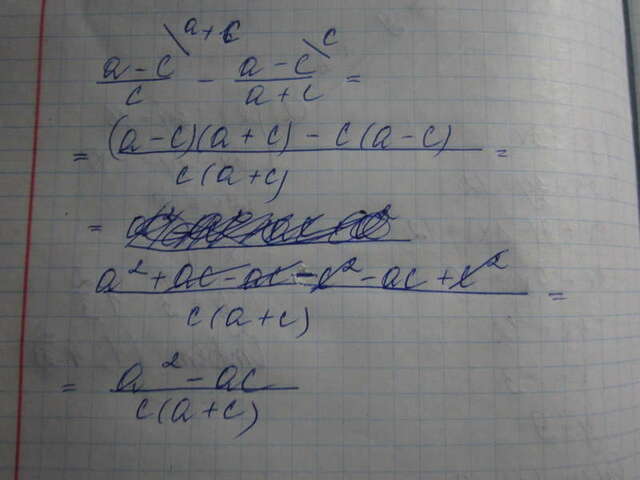 a-c \a+c - a-c \c =
c a+c
= (a-c)(a+c) - c(a-c) =
c(a+c)
=
a² + ac - ac - c² - ac + c² =
c(a+c)
= a² - ac
c(a+c)